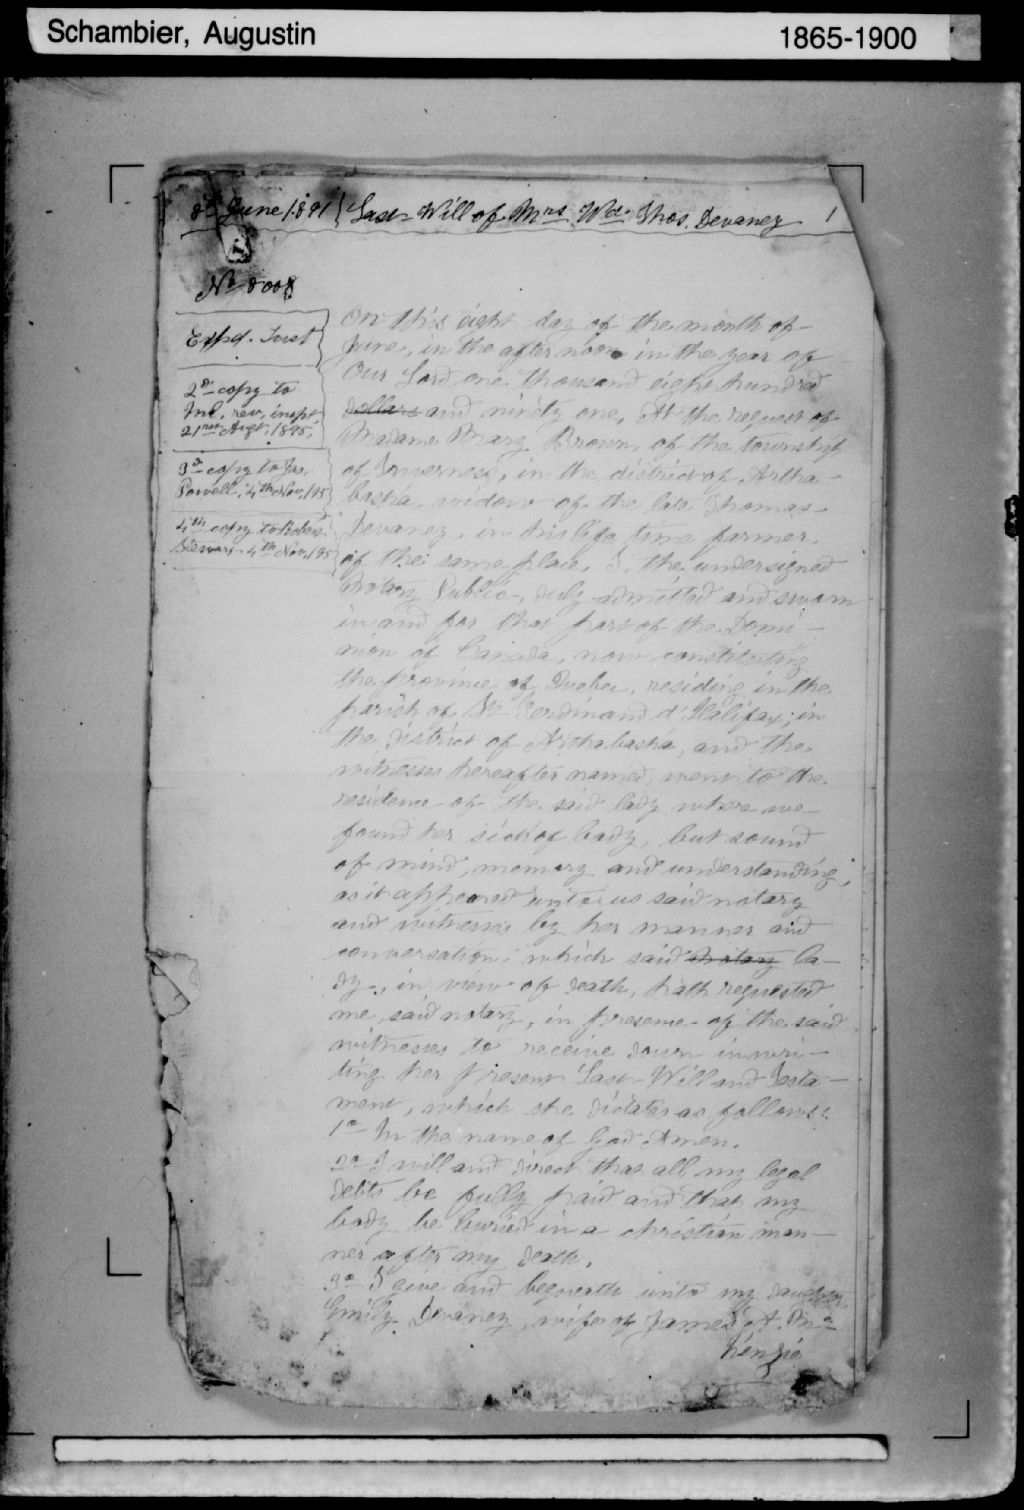 Schambier, Augustin 1865-1900
8th June 1891 Last Will of Mrs Wd. Thos. Devaney 1
No 8008
Exped. Test
2d copy to
Inl. rev. inspr
21st Augt. 1895.
3d copy to Jas.
Powell, 4th Nov. 95
4th copy to Robert
Stewart 4th Nov. 95
On this eight day of the month of
June, in the afternoon in the year of
Our Lord one thousand eight hundred
dollars and ninety one, At the request of
Madame Mary Brown, of the township
of Inverness, in the district of Artha-
baska, widow of the late Thomas
Devaney, in his life time farmer
of the same place, I, the undersigned
Notary Public, duly admitted and sworn
in and for that part of the Domi-
nion of Canada, now constituting
the province of Quebec, residing in the
parish of St Ferdinand d'Halifax, in
the district of Arthabaska, and the
witnesses hereafter named, went to the
residence of the said lady where we
found her sick of body, but sound
of mind, memory and understanding,
as it appeared unto us said notary
and witnesses by her manner and
conversation, which said notary la-
dy, in view of death, hath requested
me, said notary, in presence of the said
witnesses to receive down in wri-
ting her present Last Will and Testa-
ment, which she dictates as follows:
1o In the name of God Amen.
2o I will and direct that all my legal
debts be fully paid and that my
body be buried in a christian man-
ner after my death.
3o I give and bequeath unto my daughter
Emily Devaney, wife of James A. Mc
Kenzie